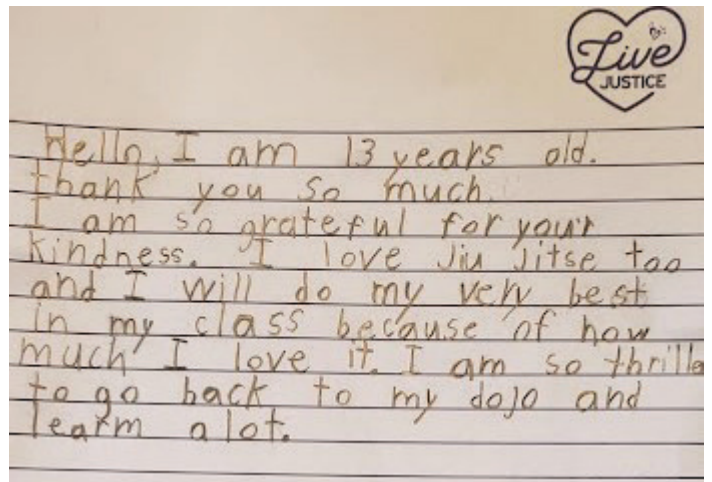 Live
JUSTICE
Hello, I am 13 years old.
thank you so much.
I am so grateful for your
kindness. I love Jiu Jitse too
and I will do my very best
in my class because of how
much I love it. I am so thrille
to go back to my dojo and
learm a lot.